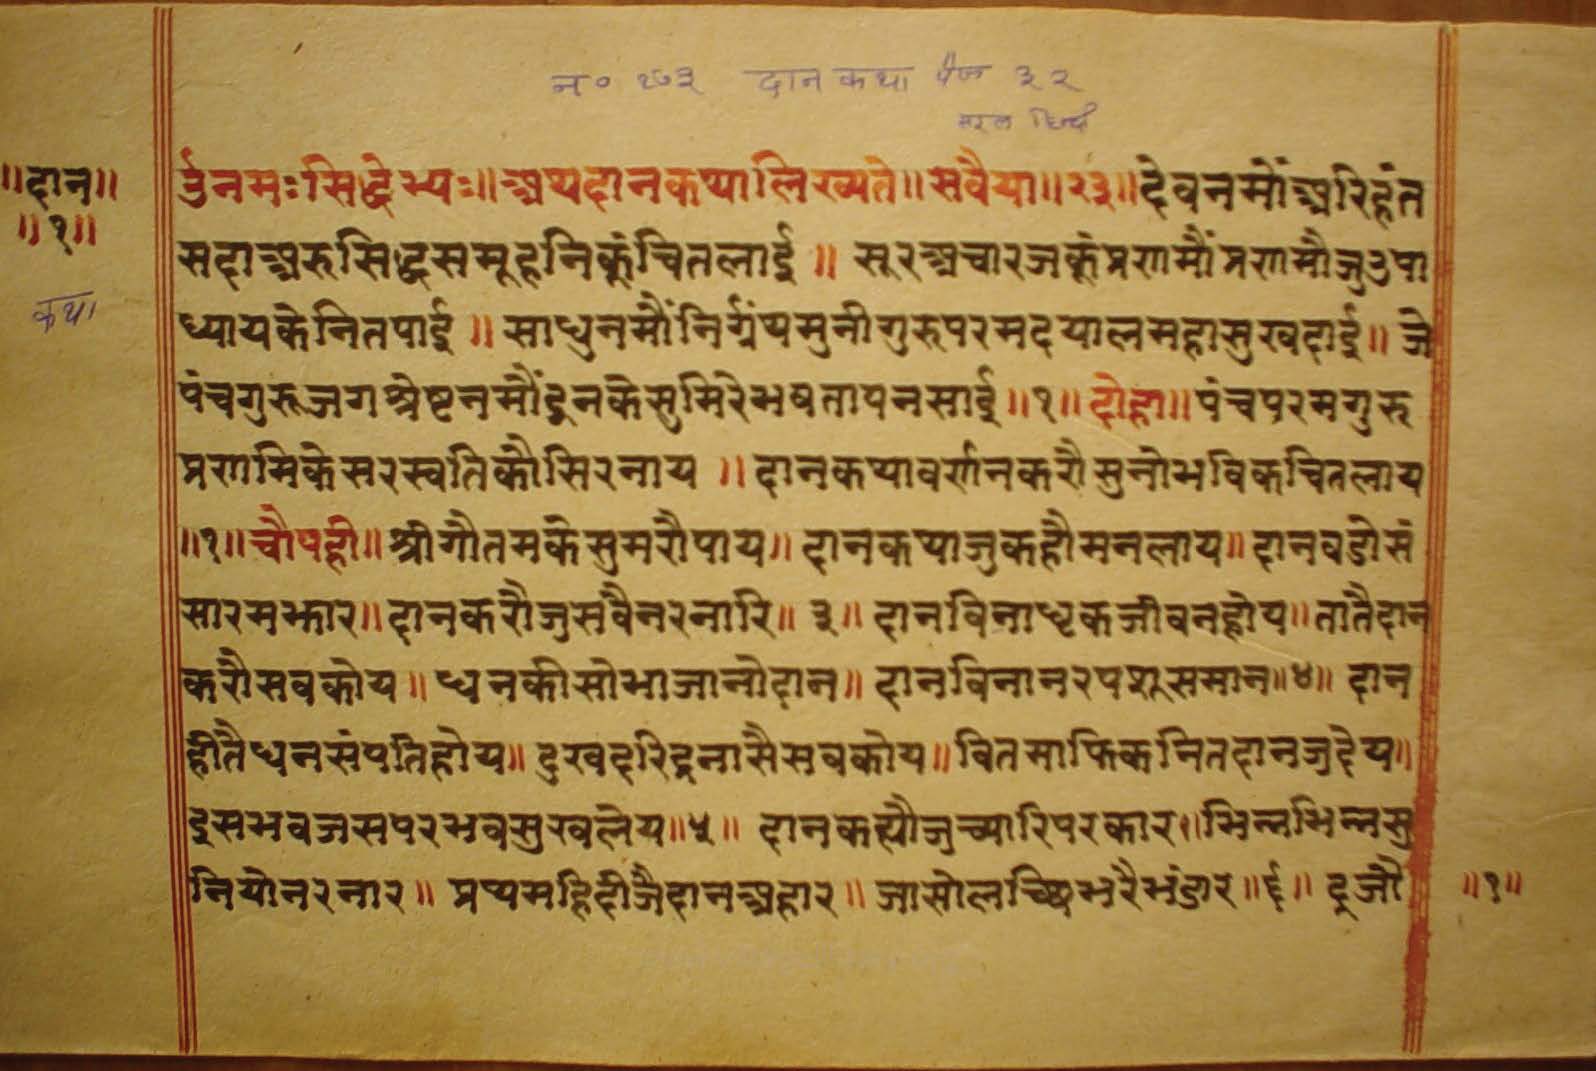 न० १७३ दान कथा पेज ३२
सरल हिन्दी
॥दान॥
॥१॥
कथा
उँनमःसिद्धेभ्यः॥अथदानकथालिख्यते॥सवैया॥२३॥देवनमौंअरिहंत
सदाअरुसिद्धसमूहनिकूंचितलाई॥ सूरअचारजकूंप्रणमौंप्रणमौजुउपा
ध्यायकेनितपाई॥ साधुनमौंनिर्ग्रंथमुनीगुरुपरमदयालमहासुखदाई॥ जे
पंचगुरुजगश्रेष्टनमौंइनकेसुमिरेभवतापनसाई॥१॥दोहा॥पंचपरमगुरु
प्रणमिकेसरस्वतिकौसिरनाय॥ दानकथावर्णनकरौसुनोभविकचितलाय
॥१॥चौपही॥श्रीगौतमकेसुमरौपाय॥ दानकथाजुकहौमनलाय॥दानवडोसं
सारमझार॥दानकरौजुसवैनरनारि॥३॥ दानविनाधृकजीवनहोय॥तातैदान
करौसवकोय॥ धनकीसोभाजानोदान॥ दानविनानरपशूसमान॥४॥ दान
हीतैधनसंपतिहोय॥ दुखदरिद्रनासैसवकोय॥वितमाफिकनितदानजुदेय॥
इसभवजसपरभवसुखलेय॥५॥ दानकह्यौजुच्यारिपरकार॥भिन्नभिन्नसु
नियोनरनार॥ प्रथमहिदीजैदानअहार॥ जासोलच्छिभरैभंडार॥६॥ दूजौ
॥१॥